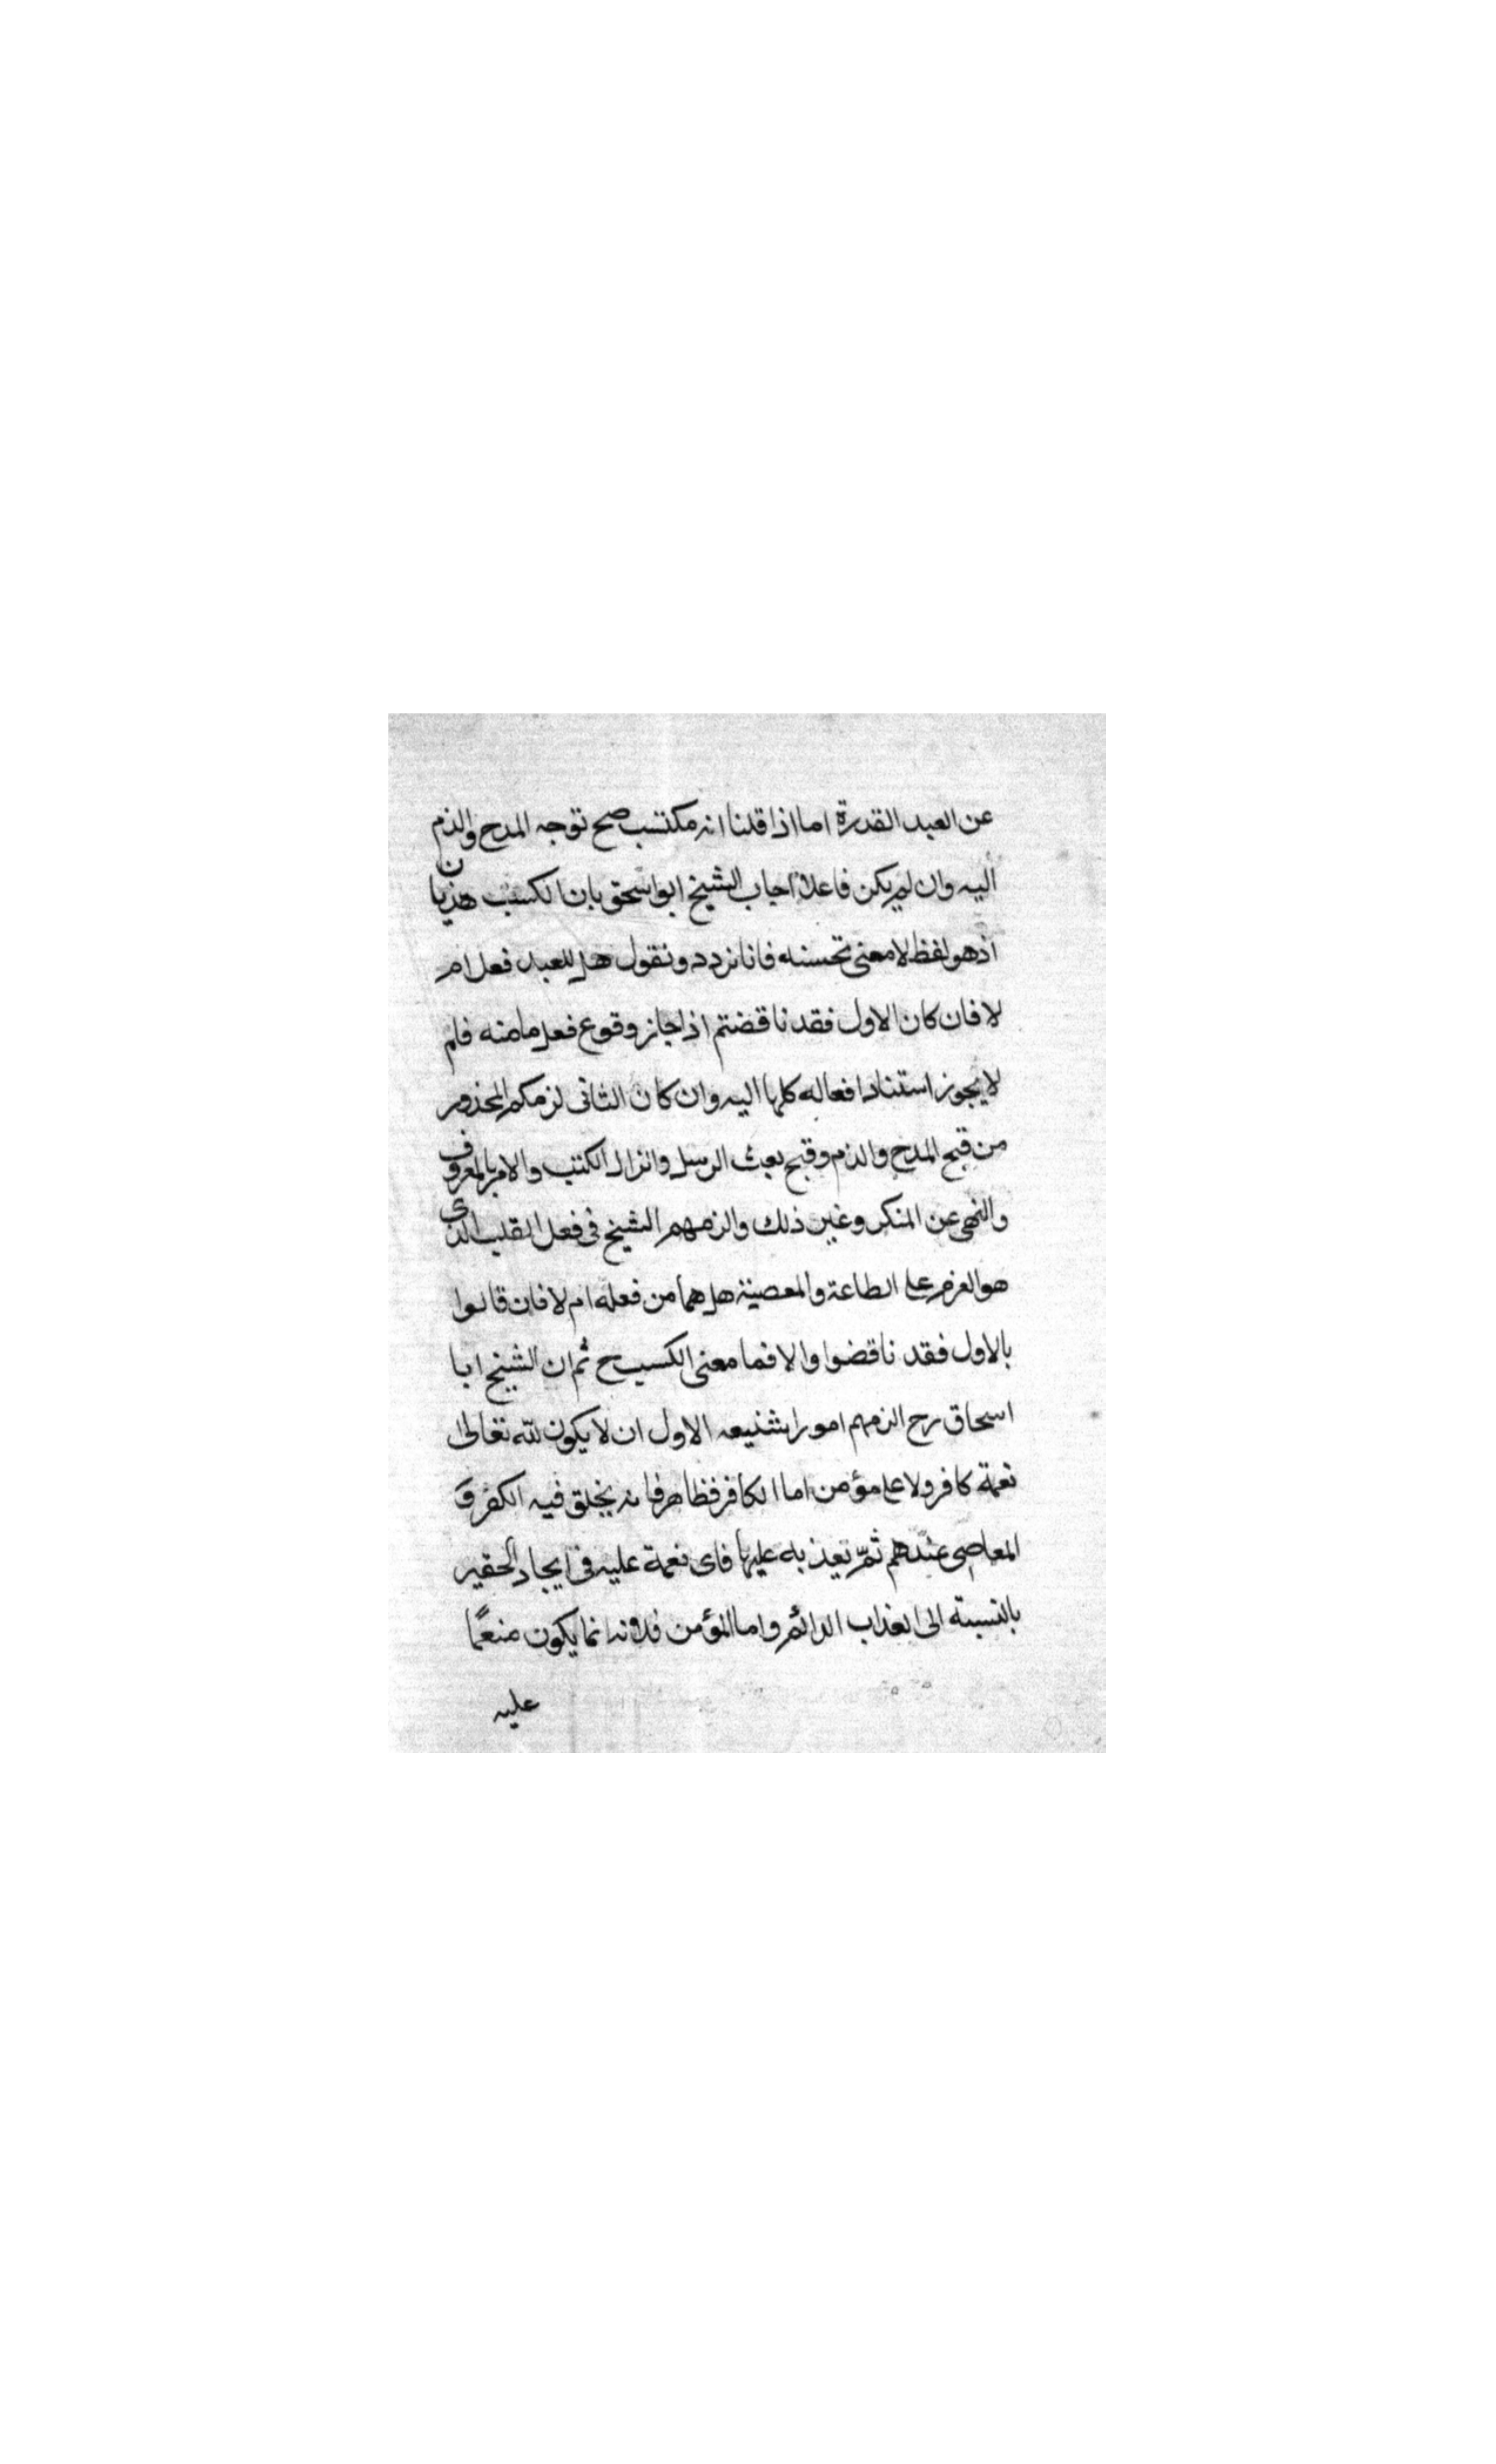 عن العبد القدرة اما اذا قلنا انه مكتسب صح توجه المدح والذم
اليه وان لم يكن فاعلا اجاب الشيخ ابو اسحق بان الكسب هذيان
اذ هو لفظ لا معنى تحسنه فانا نردد ونقول هل للعبد فعل ام
لا فان كان الاول فقد ناقضتم اذا جاز وقوع فعل ما منه فلم
لا يجوز استناد افعاله كلها اليه وان كان الثانى لزمكم المحذور
من قبح المدح والذم وقبح بعث الرسل وانزال الكتب والامر بالمعروف
والنهى عن المنكر وغير ذلك والزمهم الشيخ فى فعل القلب الذى
هو العزم على الطاعة والمعصية هل هما من فعله ام لا فان قالوا
بالاول فقد ناقضوا والا فما معنى الكسب ح ثم ان الشيخ ابا
اسحاق رح الزمهم امورا شنيعه الاول ان لا يكون لله تعالى
نعمة كافر ولا على مؤمن اما الكافر فظاهر فانه يخلق فيه الكفر و
المعاصى عندهم ثمّ يعذبه عليها فاى نعمة عليه فى ايجاد الحقير
بالنسبة الى العذاب الدائم واما المؤمن فلانه انما يكون منعمًا
عليه